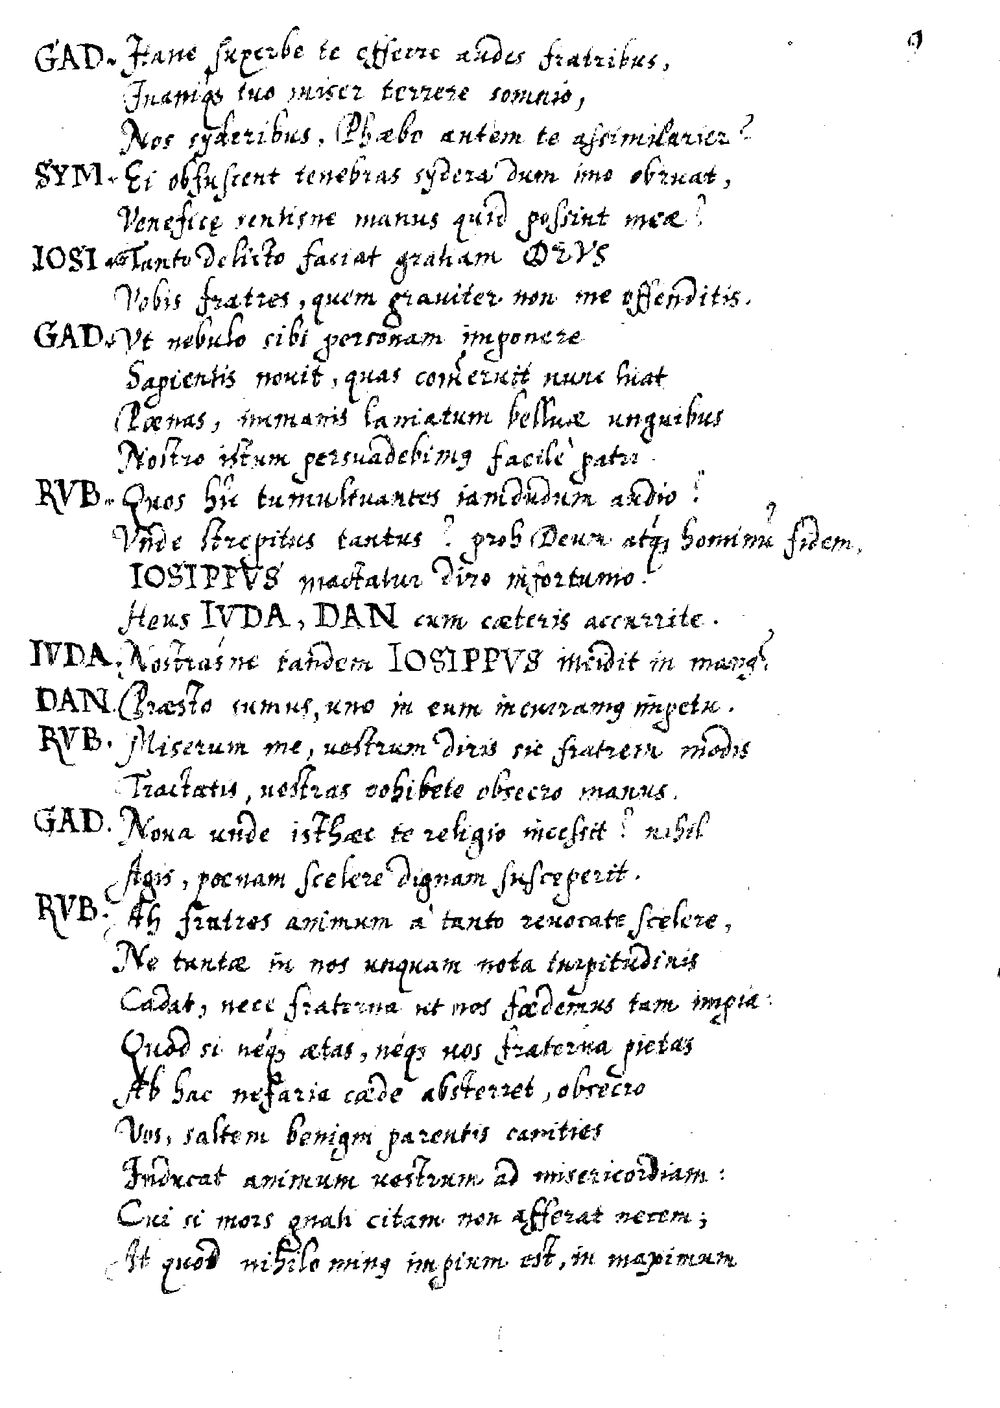 9
GAD. Hane superbe te efferre audes fratribus,
Inaniq; tuo miser terrere somnio,
Nos syderibus, Phæbo autem te assimilarier?
SYM. Ei obfuscent tenebras sydera dum imo obruat,
Veneficę sentisne manus quid possint meæ?
IOSI. Tanto delicto faciat gratiam ORVS
Vobis fratres, quem graviter non me offenditis.
GAD. Vt nebulo sibi personam imponere
Sapientis novit, quas comeruit nunc luat
Pœnas, immanis laniatum belluæ unguibus
Nostro istum persuadebimq facilè patri.
RVB. Quos hîc tumultuantes iamdudum audio?
Vnde strepitus tantus? proh Deum atq; hominũ fidem,
IOSIPPVS mactatur diro infortunio.
Heus IVDA, DAN cum cæteris accurrite.
IVDA. Nostrásne tandem IOSIPPVS incidit in manq?
DAN. Præsto sumus, uno in eum incurramq impetu.
RVB. Miserum me, vestrum diris sic fratrem modis
Tractatis, vestras cohibete obsecro manus.
GAD. Nova unde isthæc te religio incessit? nihil
Agis, poenam scelere dignam susceperit.
RVB. Ah fratres animum à tanto revocate scelere,
Ne tantæ in nos unquam nota turpitudinis
Cadat, nece fraterna ut nos fœdemus tam impia:
Quod si neq; ætas, neq; vos fraterna pietas
Ab hac nefaria cæde absterret, obsecro
Vos, saltem benigni parentis canities
Inducat animum vestrum ad misericordiam:
Cui si mors gnati citam non afferat necem;
At quod nihilo minq impium est, in maximum